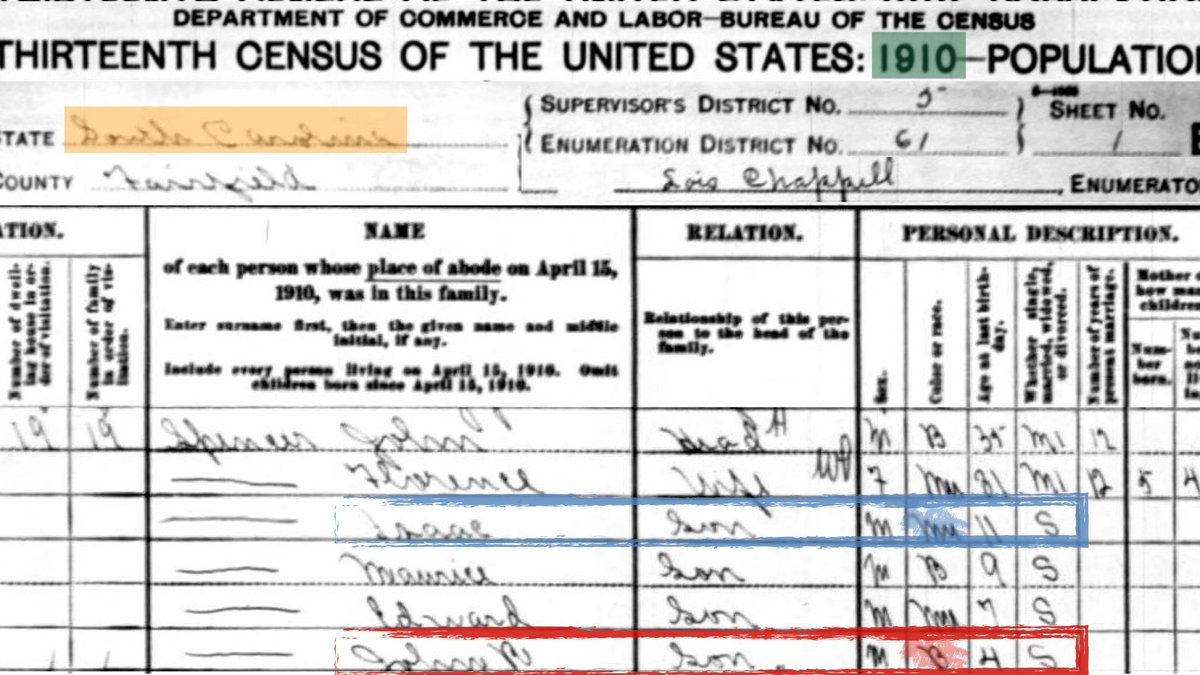 DEPARTMENT OF COMMERCE AND LABOR—BUREAU OF THE CENSUS
THIRTEENTH CENSUS OF THE UNITED STATES: 1910—POPULATION
STATE South Carolina
COUNTY Fairfield
SUPERVISOR'S DISTRICT No. 5
ENUMERATION DISTRICT No. 61
SHEET No. 1
Lois Chappell, ENUMERATO
ATION.
Number of dwelling house in order of visitation.
Number of family in order of visitation.
NAME
of each person whose place of abode on April 15,
1910, was in this family.
Enter surname first, then the given name and middle
initial, if any.
Include every person living on April 15, 1910. Omit
children born since April 15, 1910.
RELATION.
Relationship of this per-
son to the head of the
family.
PERSONAL DESCRIPTION.
Sex.
Color or race.
Age at last birth-
day.
Whether single,
married, widowed,
or divorced.
Number of years of
present marriage.
Mother o
how ma
children
Num-
ber
born.
19 19 Spencer John Head M B 35 M1 12
Florence Wife F Mu 31 M1 12 5 4
Isaac Son M Mu 11 S
Maurice Son M B 9 S
Edward Son M Mu 7 S
John P Son M B 4 S